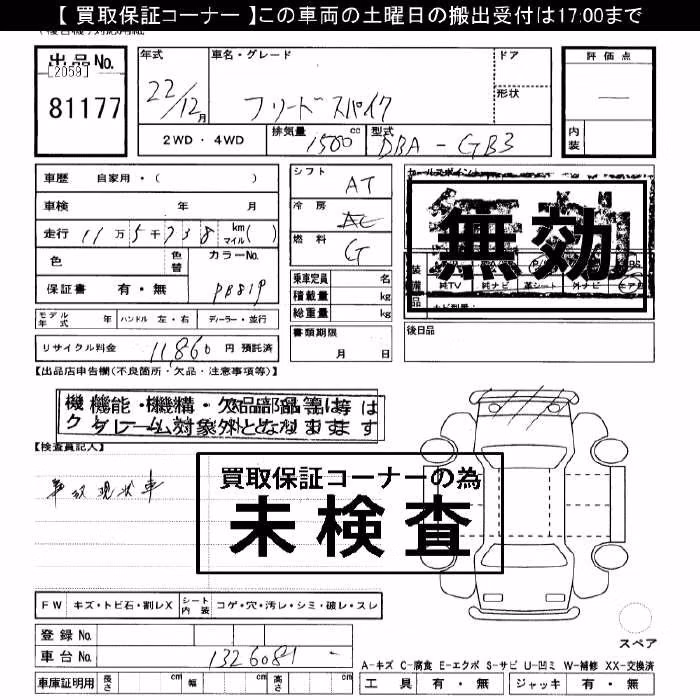 【 買取保証コーナー 】この車両の土曜日の搬出受付は17:00まで
出品No. 年式 車名・グレード ドア 評価点
[2059]
81177 22/12月 フリードスパイク 形状 —
2WD・4WD 排気量 1500 cc 型式 DBA-GB3 内装
車歴 自家用・( ) シフト AT セールスポイント
車検 年 月 冷房 AC 無効
走行 11万5千738 km マイル ( ) 燃料 G
色 色替 カラーNo. 乗車定員 名 純TV 純ナビ 革シート 外ナビ エアB
保証書 有・無 PB81P 積載量 kg
総重量 kg
モデル年式 年 ハンドル 左・右 ディーラー・並行 書類期限 月 日 後日品
リサイクル料金 11860 円 預託済
【出品店申告欄(不良箇所・欠品・注意事項等)】
機能・機構・欠品部品等は
クレーム対象外となります
【検査員記入】
買取保証コーナーの為
事故現状車
未検査
FW キズ・トビ石・割レX シート内装 コゲ・穴・汚レ・シミ・破レ・スレ
登録No. スペア
車台No. 1326081
A-キズ C-腐食 E-エクボ S-サビ U-凹ミ W-補修 XX-交換済
車庫証明用 長さ cm 幅 cm 高さ cm 工具 有・無 ジャッキ 有・無